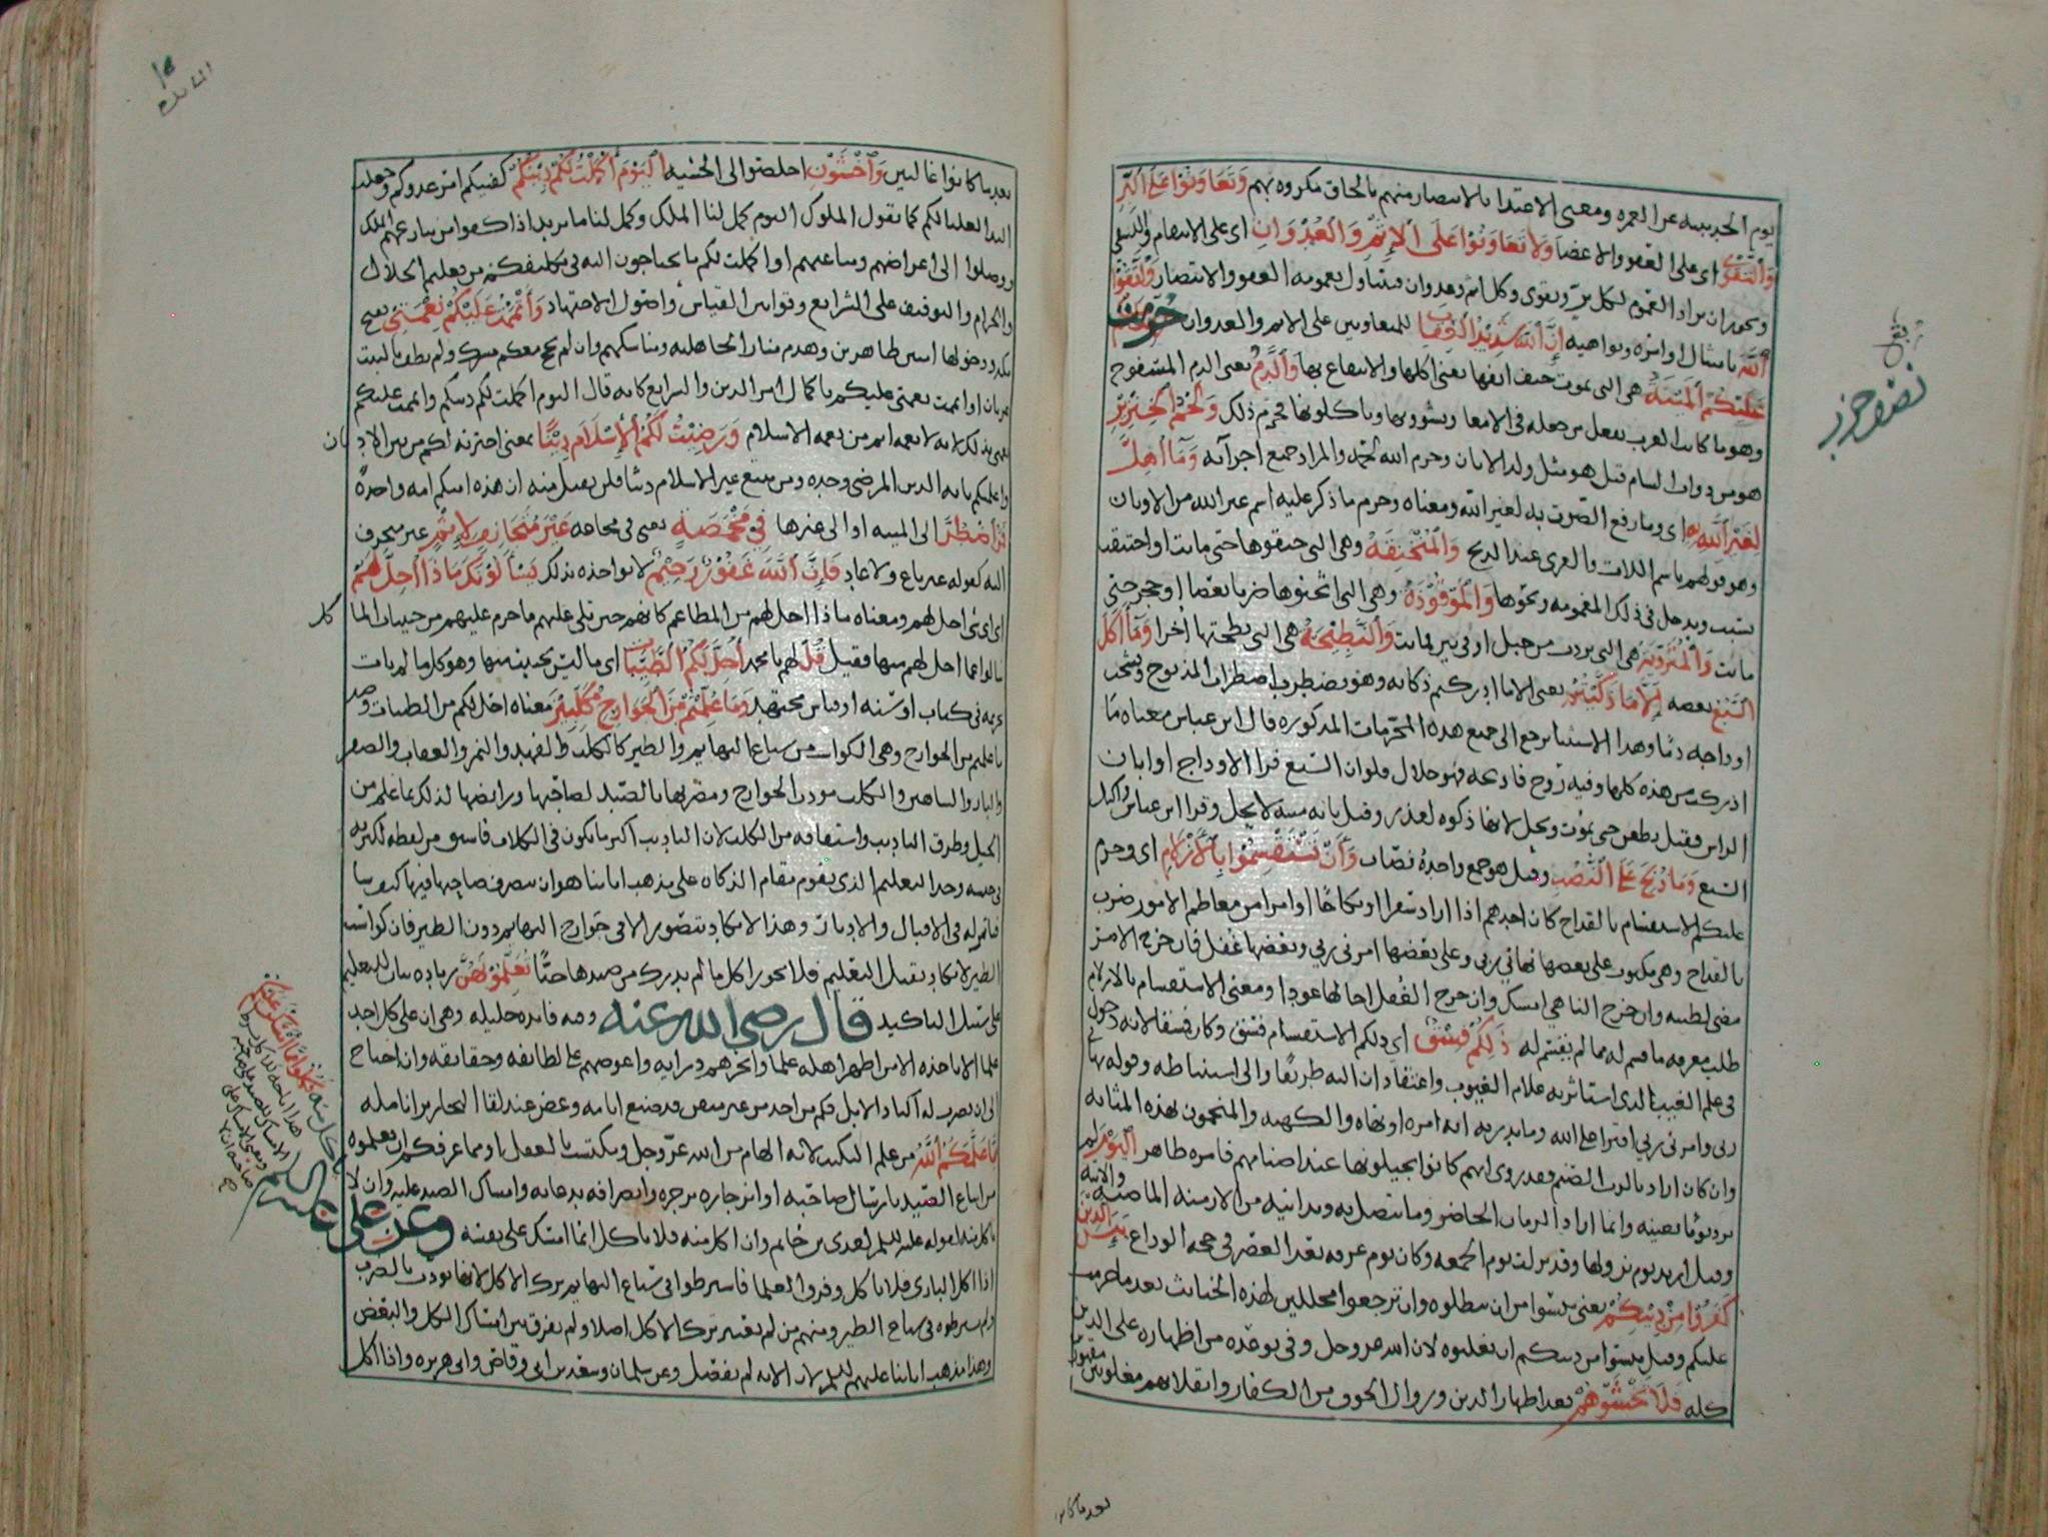 يوم الحديبيه عن العمره ومعنى الاعتدا بالانتصار منهم بالحاق مكروه بهم وَتَعَاوَنُوا عَلَى الْبِرِّ
وَالتَّقْوَى اى على العفو والاغضا وَلَا تَعَاوَنُوا عَلَى الْإِثْمِ وَالْعُدْوَانِ اى على الانتقام والتشفى
ويجوز ان يراد العموم لكل بر وتقوى وكل اثم وعدوان فيتناول بعمومه العفو والانتصار وَاتَّقُوا
اللَّهَ بامتثال اوامره ونواهيه إِنَّ اللَّهَ شَدِيدُ الْعِقَابِ للمتعاونين على الاثم والعدوان حُرِّمَتْ
عَلَيْكُمُ الْمَيْتَةُ هى التى تموت حتف انفها يعنى اكلها والانتفاع بها وَالدَّمُ يعنى الدم المسفوح
وهو ما كانت العرب تفعل من جعله فى الامعا ويشوونها وياكلونها فحرم ذلك وَلَحْمُ الْخِنْزِيرِ
وحرم الله لحمه والمراد جميع اجزآئه وَمَا أُهِلَّ
لِغَيْرِ اللَّهِ بِهِ اى وما رفع الصوت به لغير الله ومعناه وحرم ما ذكر عليه اسم غير الله من الاوثان
وهو قولهم باسم اللات والعزى عند الذبح وَالْمُنْخَنِقَةُ وهى التى خنقوها حتى ماتت او اختنقت
بسبب ويدخل فى ذلك المغمومه ونحوها وَالْمَوْقُوذَةُ وهى التى اثخنوها ضربا بعصا او حجر حتى
ماتت وَالْمُتَرَدِّيَةُ هى التى تردت من جبل او فى بير فماتت وَالنَّطِيحَةُ هى التى نطحتها اخرا وَمَا أَكَلَ
السَّبُعُ بعضه إِلَّا مَا ذَكَّيْتُمْ يعنى الا ما ادركتم ذكاته وهو يضطرب اضطراب المذبوح وتشخب
اوداجه دما وهذا الاستثنا يرجع الى جميع هذه المحرمات المذكوره قال ابن عباس معناه ما
ادركت من هذه كلها وفيه روح فاذبحه فهو حلال فلو ان السبع فرا الاوداج او ابان
الراس فقيل يطعن حى يموت ويحل لانها ذكوه لعذر وقيل بانه ميته لا يحل وقرا ابن عباس واكيل
السبع وَمَا ذُبِحَ عَلَى النُّصُبِ وقيل هو جمع واحده نصاب وَأَنْ تَسْتَقْسِمُوا بِالْأَزْلَامِ اى وحرم
عليكم الاستقسام بالقداح كان احدهم اذا اراد سفرا او نكاحا او امرا من معاظم الامور ضرب
بالقداح وهى مكتوب على بعضها نهانى ربى وعلى بعضها امرنى ربى وبعضها غفل فان خرج الامر
مضى لطيته وان خرج الناهى امسك وان خرج الغفل اجالها عودا ومعنى الاستقسام بالازلام
طلب معرفه ما قسم له مما لم يقسم له ذَلِكُمْ فِسْقٌ اى ذلكم الاستقسام فسق وكان فسقا لانه دخول
فى علم الغيب الذى استاثر به علام الغيوب واعتقاد ان اليه طريقا والى استنباطه وقوله نهانى
ربى وامرنى ربى افترا على الله وما يدريه انه امره او نهاه والكهنه والمنجمون بهذه المثابه
وان كان اراد بالرب الصنم فقد روى انهم كانوا يجيلونها عند اصنامهم فامره ظاهر الْيَوْمَ لم
يرد يوما بعينه وانما اراد الزمان الحاضر وما يتصل به ويدانيه من الازمنه الماضيه والاتيه
وقيل اريد يوم نزولها وقد نزلت يوم الجمعه وكان يوم عرفه بعد العصر فى حجه الوداع يَئِسَ الَّذِينَ
كَفَرُوا مِنْ دِينِكُمْ يعنى يئسوا من ان تبطلوه وان ترجعوا محللين لهذه الخبائث بعد ما حرمت
عليكم وقيل يئسوا من دينكم ان يغلبوه لان الله عز وجل وفى بوعده من اظهاره على الدين
كله فَلَا تَخْشَوْهُمْ بعد اظهار الدين وزوال الخوف من الكفار وانقلابهم مغلوبين مقهورين
بعد ما كانوا
بعد ما كانوا غالبين وَاخْشَوْنِ اخلصوا الى الخشيه الْيَوْمَ أَكْمَلْتُ لَكُمْ دِينَكُمْ كفيتكم امر عدوكم وجعلت
اليد العليا لكم كما تقول الملوك اليوم كمل لنا الملك وكمل لنا ما نريد اذا كفوا من ينازعهم الملك
ووصلوا الى اغراضهم ومباغيهم او اكملت لكم ما تحتاجون اليه فى تكليفكم من تعليم الحلال
والحرام والتوقيف على الشرائع وقوانين القياس واصول الاجتهاد وَأَتْمَمْتُ عَلَيْكُمْ نِعْمَتِي بفتح
مكه ودخولها امنين ظاهرين وهدم منار الجاهليه ومناسكهم وان لم يحج معكم مشرك ولم يطف بالبيت
عريان او اتممت نعمتى عليكم باكمال امر الدين والشرايع كانه قال اليوم اكملت لكم دينكم واتممت عليكم
نعمتى بذلك لانه لا نعمه اتم من نعمه الاسلام وَرَضِيتُ لَكُمُ الْإِسْلَامَ دِينًا بمعنى اخترته لكم من بين الاديان
واعلمكم بانه الدين المرضى وحده ومن يبتغ غير الاسلام دينا فلن يقبل منه ان هذه امتكم امه واحدة
فَمَنِ اضْطُرَّ الى الميته او الى غيرها فِي مَخْمَصَةٍ يعنى فى مجاعه غَيْرَ مُتَجَانِفٍ لِإِثْمٍ غير منحرف
اليه كقوله غير باغ ولا عاد فَإِنَّ اللَّهَ غَفُورٌ رَحِيمٌ لا يواخذه بذلك يَسْأَلُونَكَ مَاذَا أُحِلَّ لَهُمْ
اى اى شى احل لهم ومعناه ماذا احل لهم من المطاعم كانهم حين تلى عليهم ما حرم عليهم من خبيثات الماكل
سالوا عما احل لهم منها فقيل قُلْ لهم يا محمد أُحِلَّ لَكُمُ الطَّيِّبَاتُ اى ما ليس بخبيث منها وهو كل ما لم يات
تحريمه فى كتاب او سنه او قياس مجتهد وَمَا عَلَّمْتُمْ مِنَ الْجَوَارِحِ مُكَلِّبِينَ معناه احل لكم من الطيبات وصيد
ما علمتم من الجوارح وهى الكواسب من سباع البهايم والطير كالكلب والفهد والنمر والعقاب والصقر
والبازى والشاهين والمكلب مودب الجوارح ومضريها بالصيد لصاحبها ورائضها لذلك بما علم من
الحيل وطرق التاديب واشتقاقه من الكلب لان التاديب اكثر ما يكون فى الكلاب فاشتق من لفظه لكثرته
فى جنسه وحد التعليم الذى يقوم مقام الذكاه على مذهب ابائنا هو ان يتصرف صاحبها فيها كيف شا
فتاتمر له فى الاقبال والادبار وهذا لا يكاد يتصور الا فى جوارح البهايم دون الطير فان كواسب
الطير لا يكاد يقبل التعليم فلا يجوز اكل ما لم يدرك من صيدها حيًّا تُعَلِّمُونَهُنَّ زياده بيان للتعليم
على سبيل التاكيد قال رضى الله عنه وفيه فائده جليله وهى ان على كل اخذ
علما الا ياخذه الا من اظهر اهله علما وانحرهم درايه واغوصهم على لطائفه وحقائقه وان احتاج
الى ان يضرب له اكباد الابل فكم من اخذ من غير متقن قد ضيع ايامه وعض عند لقا النحارير انامله
مِمَّا عَلَّمَكُمُ اللَّهُ من علم التكليب لانه الهام من الله عز وجل ومكتسب بالعقل او مما عرفكم ان تعلموه
من اتباع الصيد بارسال صاحبه او انزجاره بزجره وانصرافه بدعائه وامساك الصيد عليه وان لا
ياكل منه لقوله عليه السلم لعدى بن حاتم وان اكل منه فلا تاكل انما امسك على نفسه وعن على عليه السلم
اذا اكل البازى فلا تاكل وفرق العلما فاشترطوا فى سباع البهايم ترك الاكل لانها تودب بالضرب
ولم يشترطوه فى سباع الطير ومنهم من لم يعتبر ترك الاكل اصلا ولم يفرق بين امساك الكل والبعض
وهذا مذهب ابائنا عليهم السلم لان الايه لم تفصل وعن سلمان وسعد بن ابى وقاص وابى هريره واذا اكل